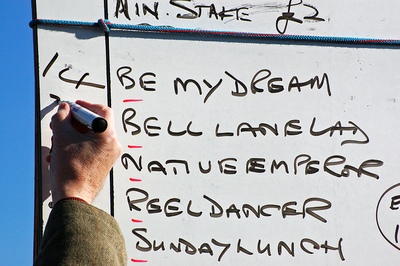 MIN. STAKE £2
14 BE MY DREAM
BELL LANE LAD
NATIVE EMPEROR
REEL DANCER
SUNDAY LUNCH
E
1